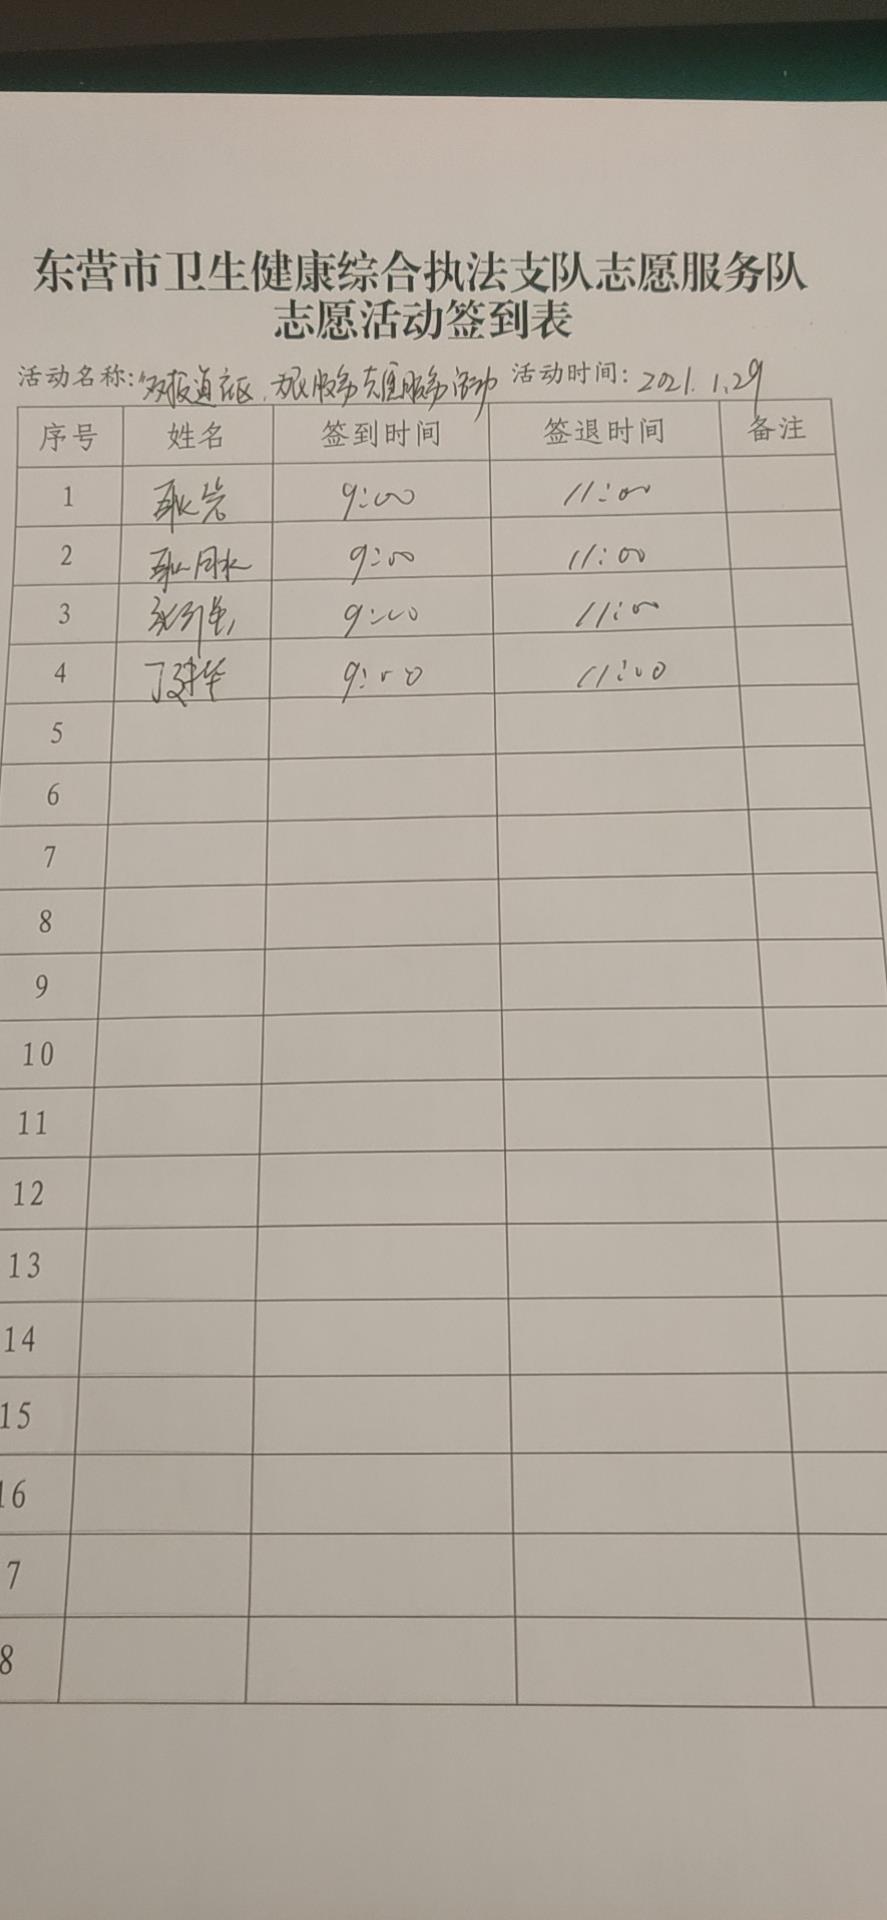 东营市卫生健康综合执法支队志愿服务队
志愿活动签到表
活动名称:"双报道社区,为民服务志愿服务活动 活动时间: 2021.1.29
序号 姓名 签到时间 签退时间 备注
1 耿岩 9:00 11:00
2 耿同水 9:00 11:00
3 9:00 11:00
4 丁建华 9:00 11:00
5
6
7
8
9
10
11
12
13
14
15
16
7
8